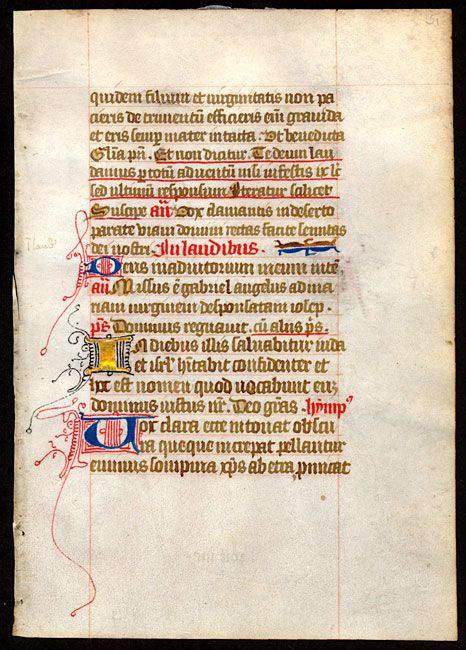 quidem filium et virginitatis non pa
cieris detrimentum efficieris eni gravida
et eris semp mater intacta. Ut benedicta
Glia pri. Et non dicitur. Te deum lau
damus p totū adventū nisi in festis ix lc
sed ultimum responsum iteratur scilicet
Suscipe añ Vox clamantis in deserto
parate viam domini rectas facite semitas
dei nostri. In laudibus.
Deus in adiutorium meum intē.
añ Missus ē gabriel angelus ad ma
riam virginem desponsatam iosep.
ps Dominus regnavit. cū aliis ps.
In diebus illis salvabitur iuda
et isrl hitabit confidenter et
hoc est nomen quod vocabunt eū
dominus iustus nr. Deo gras. hymp
Vox clara ecce intonat obscu
ra queque increpat pellantur
eminus sompnia xps ab etra pmicat